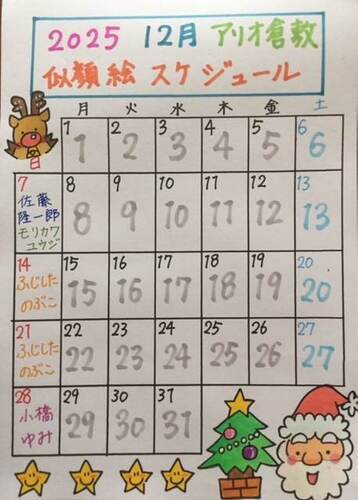 2025 12月 アリオ倉敷
似顔絵 スケジュール
日 月 火 水 木 金 土
1 2 3 4 5 6
1 2 3 4 5 6
7 8 9 10 11 12 13
佐藤
隆一郎
モリカワ
ユウジ
8 9 10 11 12 13
14 15 16 17 18 19 20
ふじした
のぶこ
15 16 17 18 19 20
21 22 23 24 25 26 27
ふじした
のぶこ
22 23 24 25 26 27
28 29 30 31
小橋
ゆみ
29 30 31